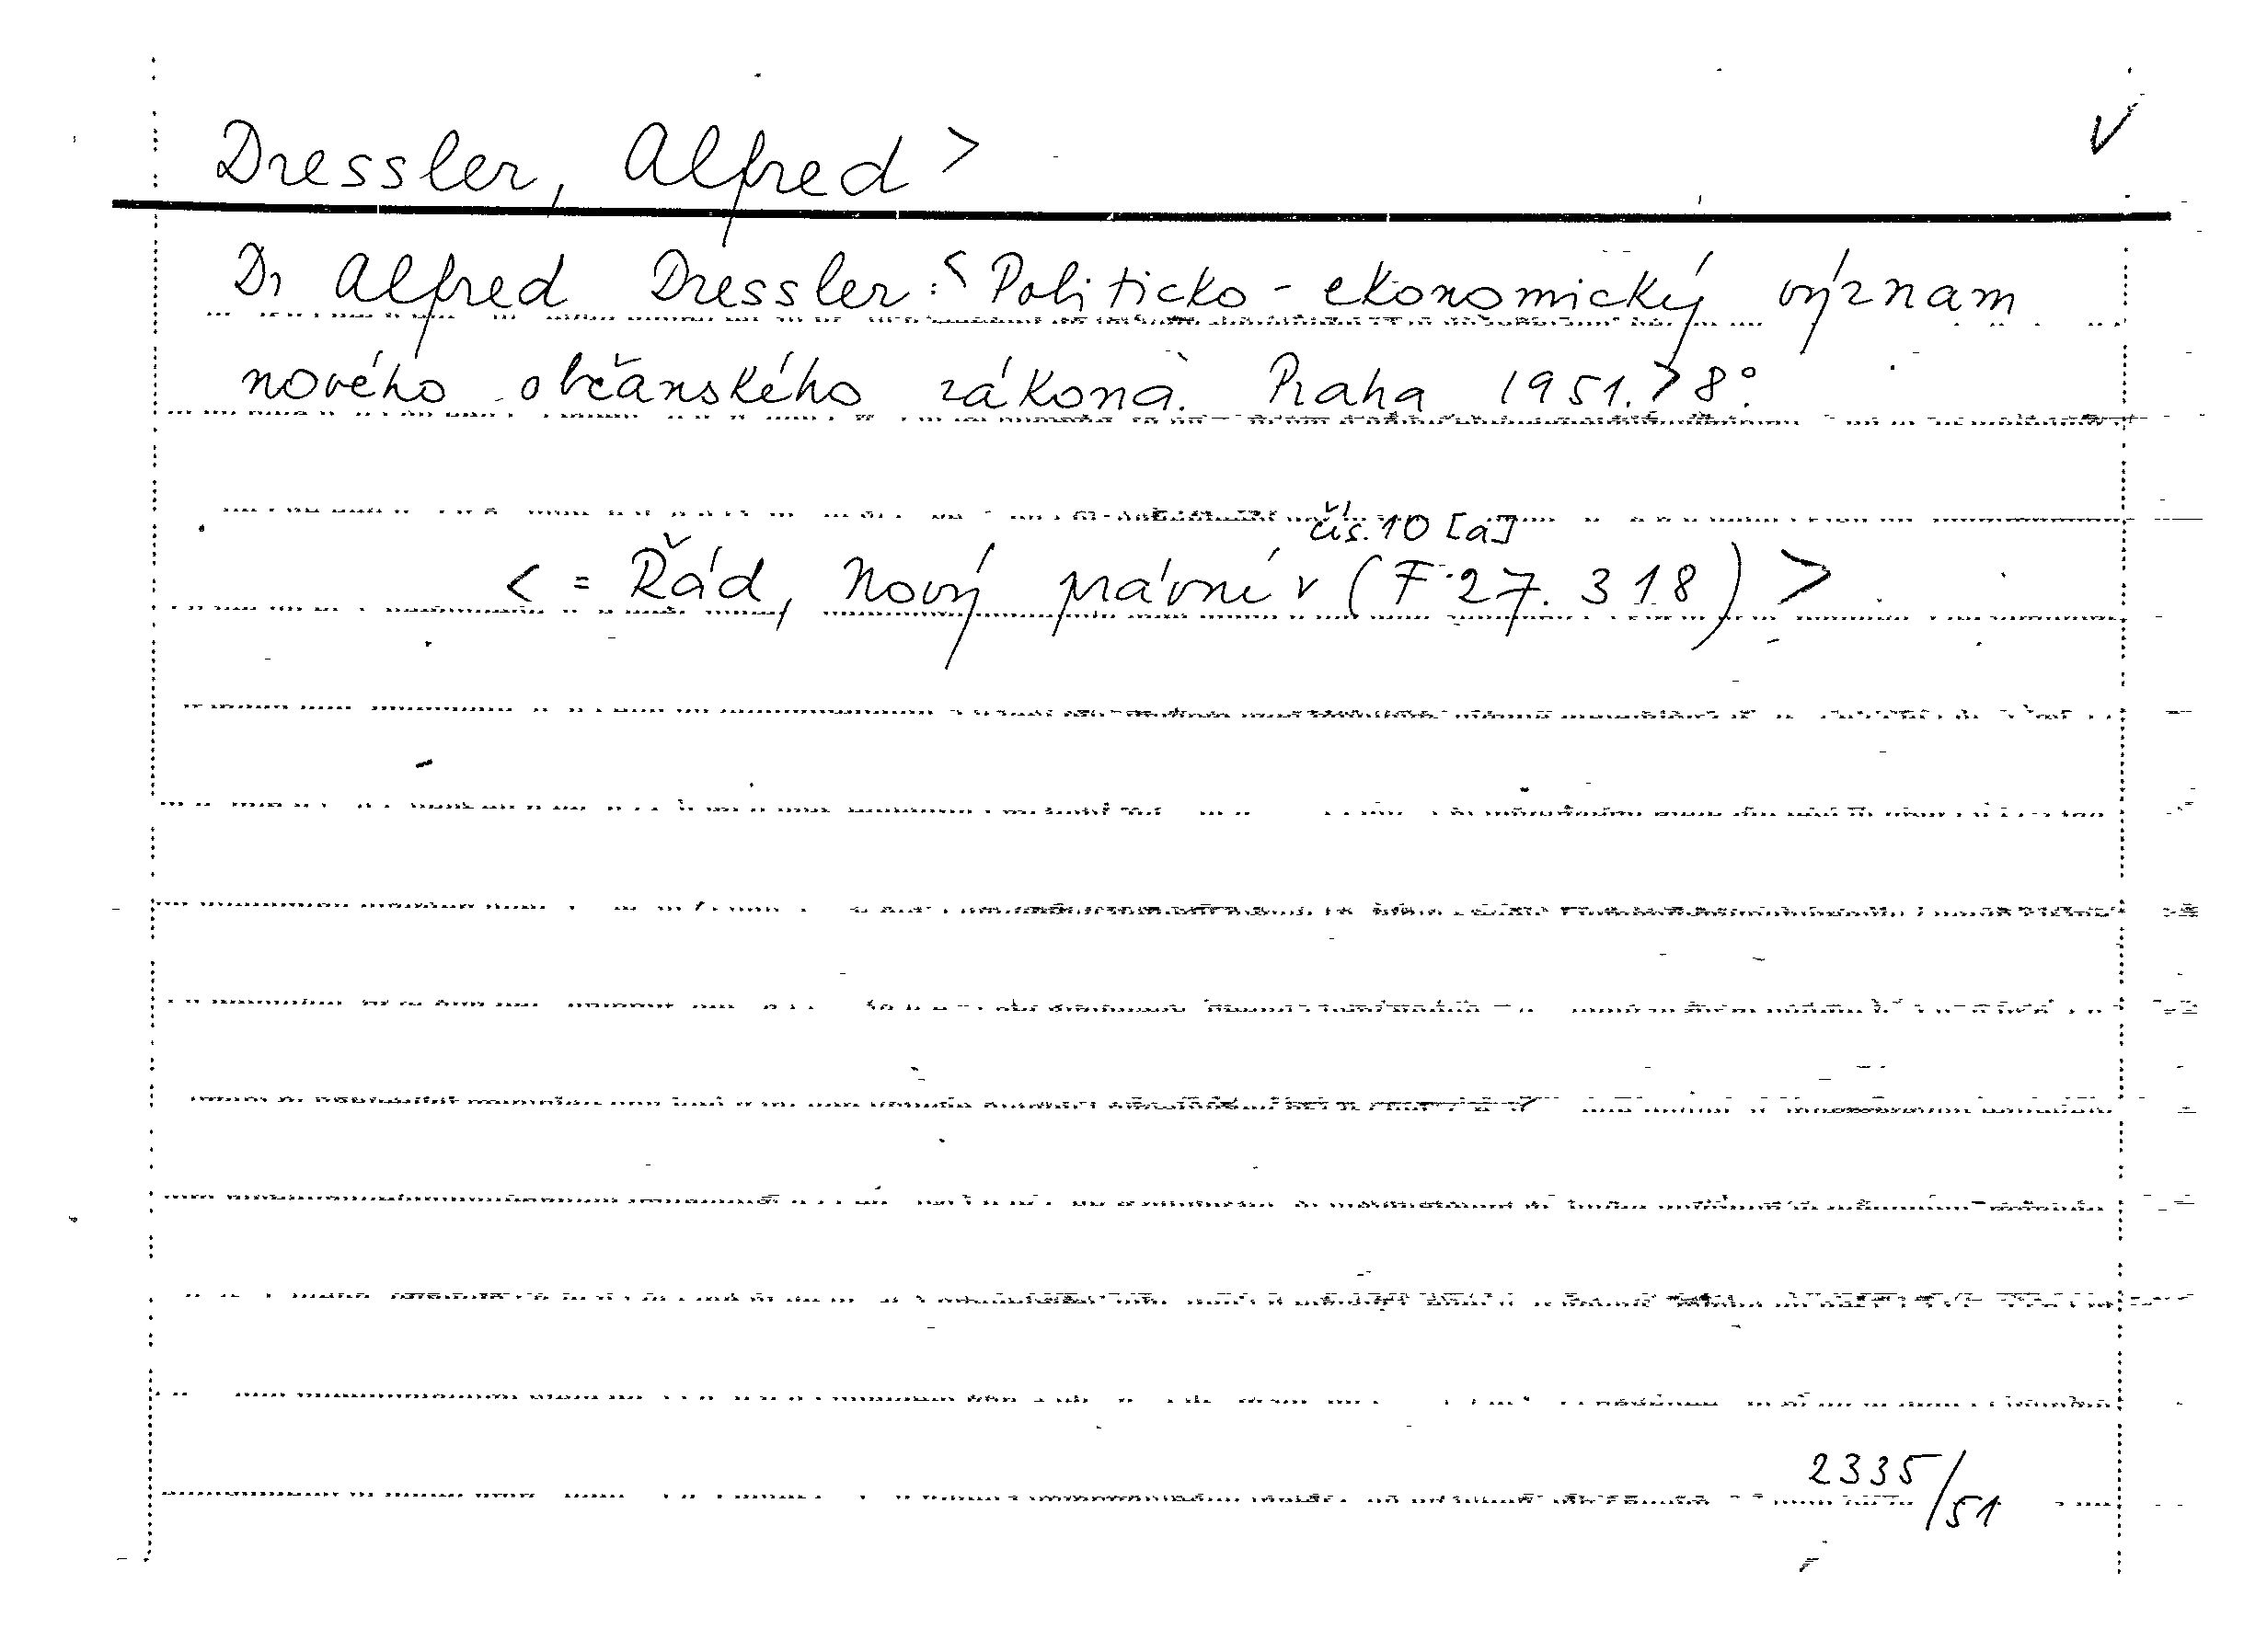 Dressler, Alfred > V
Dr Alfred Dressler: < Politicko-ekonomický význam
nového občanského zákona. Praha 1951. > 8°.
čís. 10 [a]
< = Řád, Nový právní v (F 27.318) >
2335/51